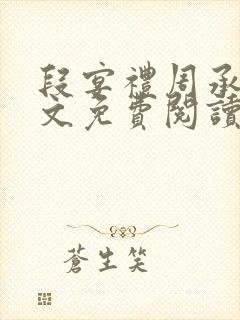 段宴禮周承
文免費閱讀
蒼生笑